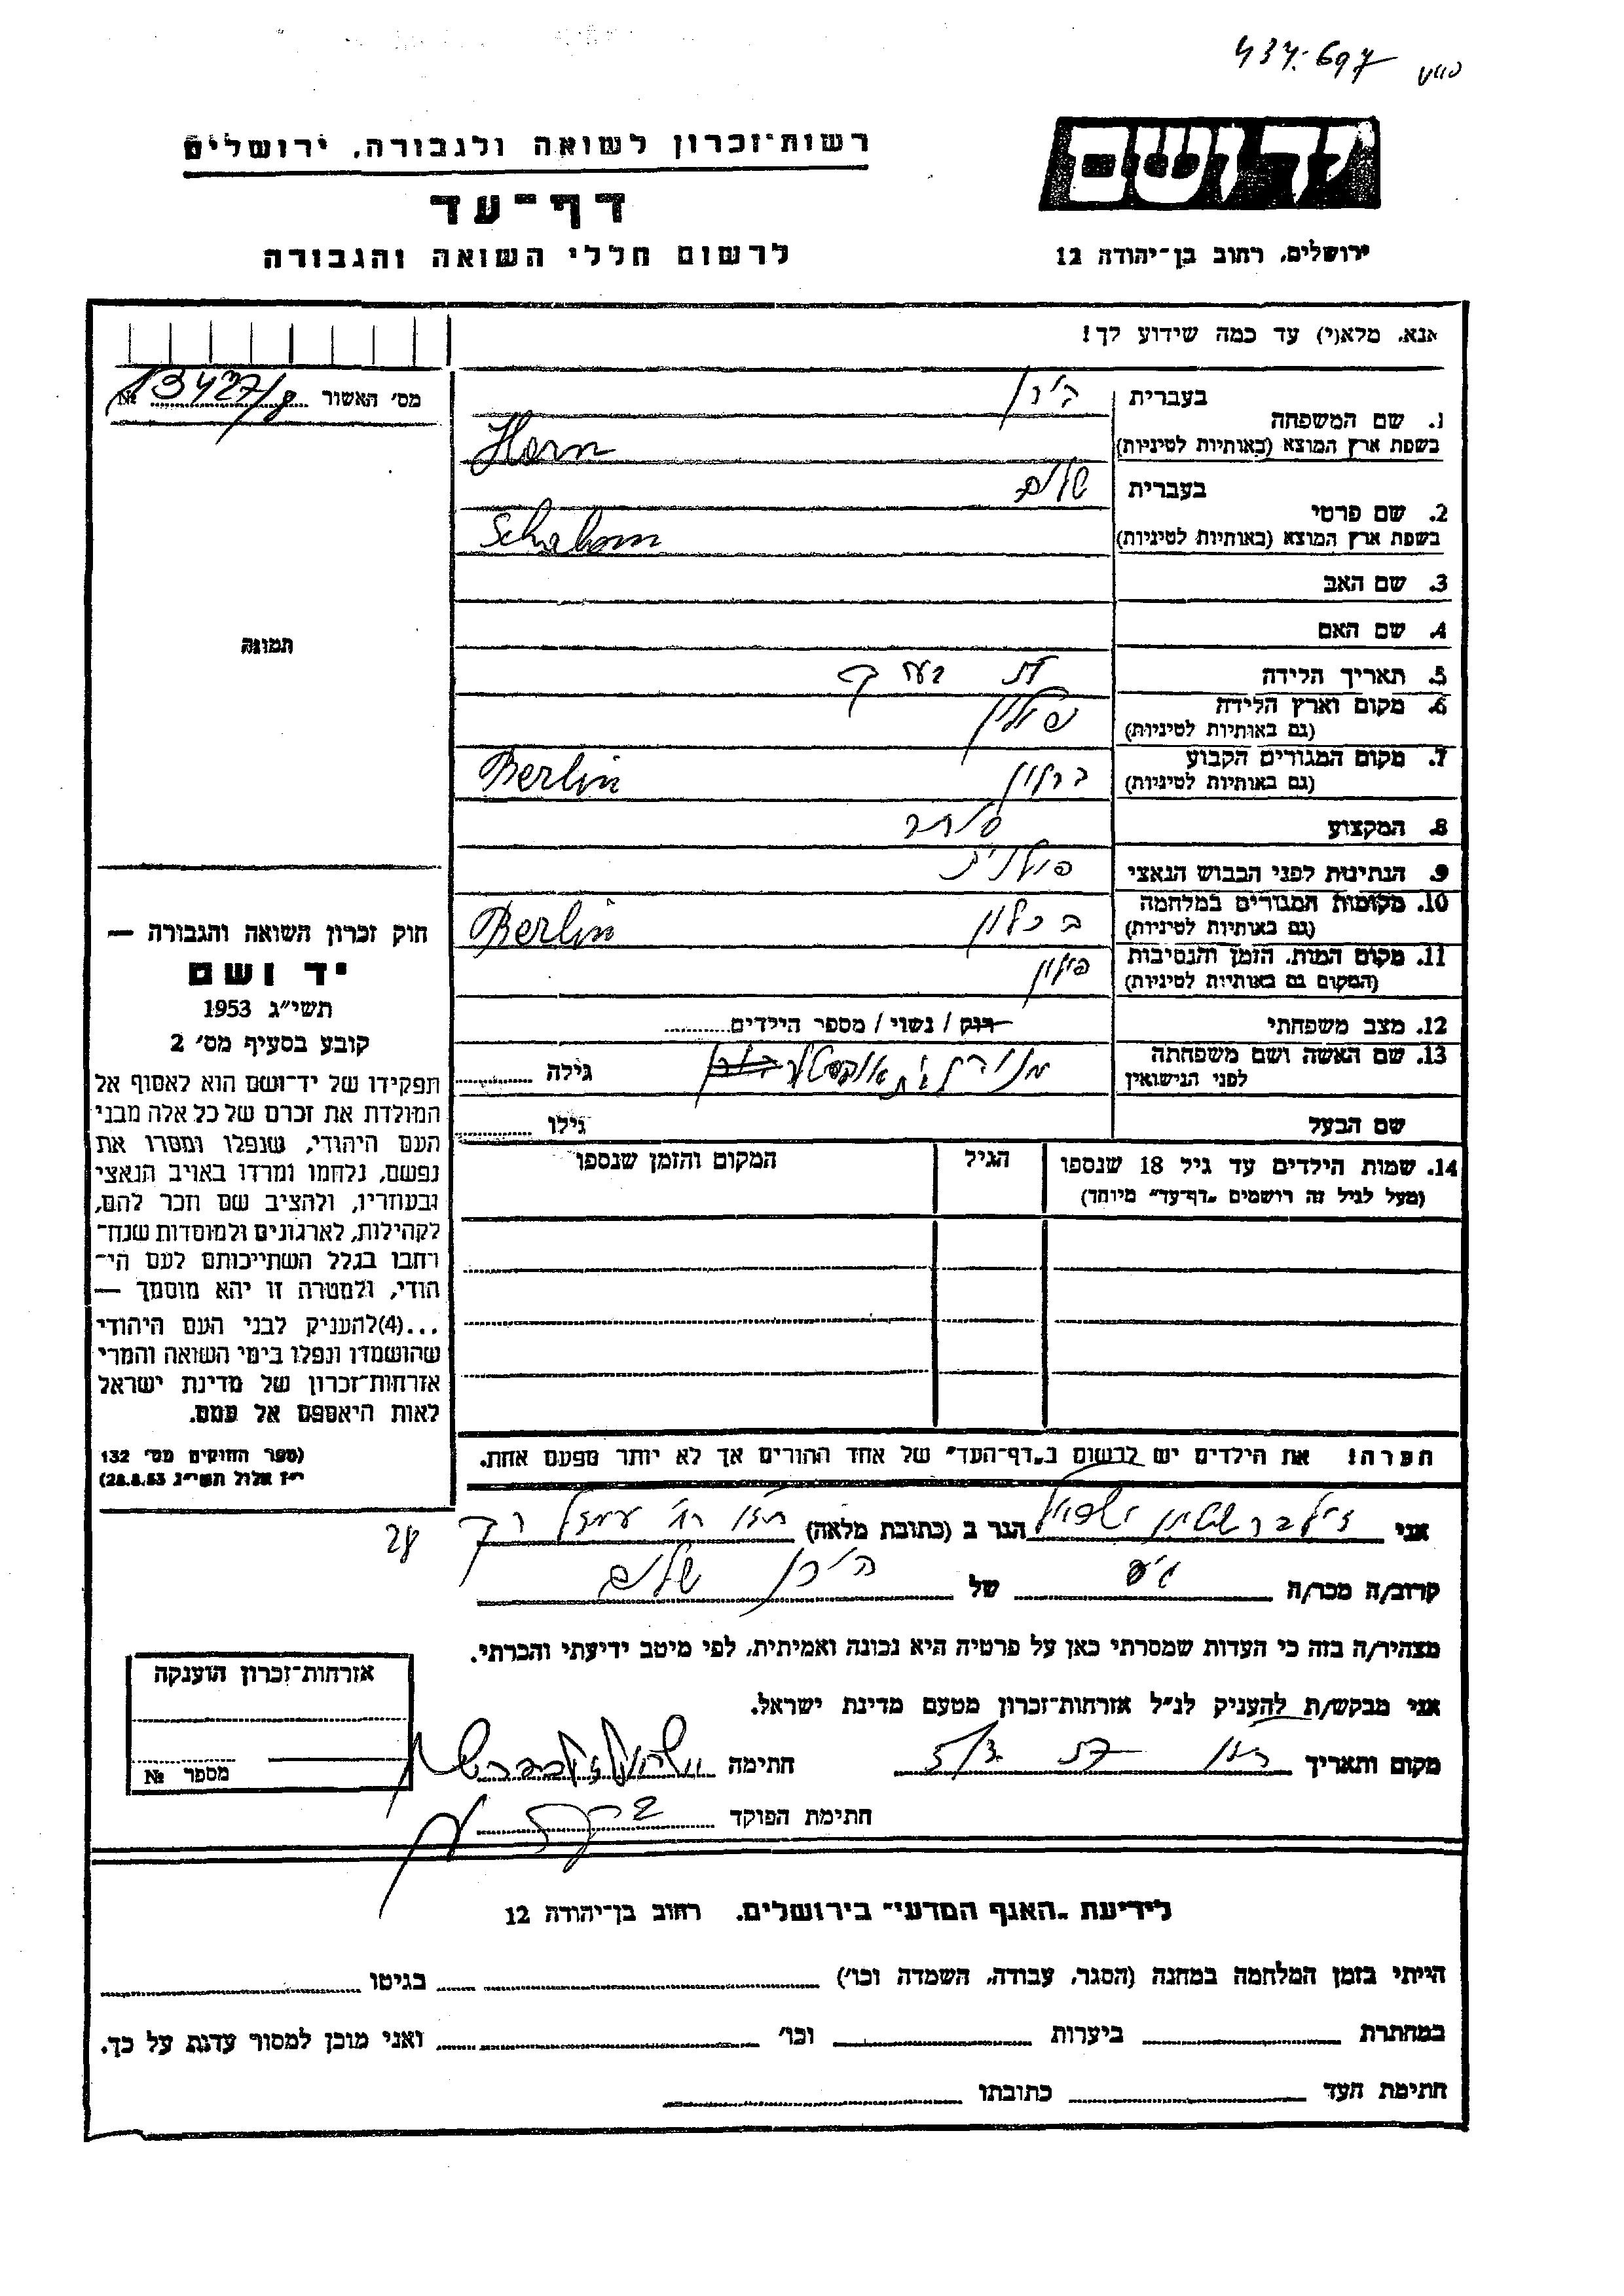 437.697
יד ושם
רשות־זכרון לשואה ולגבורה, ירושלים
דף־עד
לרשום חללי השואה והגבורה
ירושלים, רחוב בן־יהודה 12
אנא, מלא(י) עד כמה שידוע לך!
מס׳ האשור № 13427/8
1. שם המשפחה
בעברית הורן
בשפת ארץ המוצא (באותיות לטיניות) Horn
2. שם פרטי
בעברית שלום
בשפת ארץ המוצא (באותיות לטיניות) Schalom
3. שם האב
4. שם האם
5. תאריך הלידה
6. מקום וארץ הלידה פולין
(גם באותיות לטיניות)
7. מקום המגורים הקבוע ברלין Berlin
(גם באותיות לטיניות)
8. המקצוע סוחר
9. הנתינות לפני הכבוש הנאצי פולנית
10. מקומות המגורים במלחמה ברלין Berlin
(גם באותיות לטיניות)
11. מקום המות, הזמן והנסיבות פולין
(המקום גם באותיות לטיניות)
12. מצב משפחתי רוק / נשוי / מספר הילדים
13. שם האשה ושם משפחתה
לפני הנישואין
גילה
שם הבעל
גילו
14. שמות הילדים עד גיל 18 שנספו
(מעל לגיל זה רושמים „דף־עד״ מיוחד)
הגיל
המקום והזמן שנספו
תמונה
חוק זכרון השואה והגבורה —
יד ושם
תשי״ג 1953
קובע בסעיף מס׳ 2
תפקידו של יד־ושם הוא לאסוף אל
המולדת את זכרם של כל אלה מבני
העם היהודי, שנפלו ומסרו את
נפשם, נלחמו ומרדו באויב הנאצי
ובעוזריו, ולהציב שם וזכר להם,
לקהילות, לארגונים ולמוסדות שנח־
רבו בגלל השתייכותם לעם הי־
הודי, ולמטרה זו יהא מוסמך —
...(4)להעניק לבני העם היהודי
שהושמדו ונפלו בימי השואה והמרי
אזרחות־זכרון של מדינת ישראל
לאות היאספם אל עמם.
(ספר החוקים מס׳ 132
י״ז אלול תשי״ג 28.8.53)
הערה! את הילדים יש לרשום ב„דף־העד״ של אחד ההורים אך לא יותר מפעם אחת.
אני זילברשטיין ישראל הגר ב (כתובת מלאה)
28
קרוב/ה מכר/ה גיס של הורן שלום
מצהיר/ה בזה כי העדות שמסרתי כאן על פרטיה היא נכונה ואמיתית, לפי מיטב ידיעתי והכרתי.
אני מבקש/ת להעניק לנ״ל אזרחות־זכרון מטעם מדינת ישראל.
מקום ותאריך חתימה
חתימת הפוקד
אזרחות־זכרון הוענקה
מספר №
לידיעת „האגף המדעי״ בירושלים, רחוב בן־יהודה 12
הייתי בזמן המלחמה במחנה (הסגר, עבודה, השמדה וכו׳) בגיטו
במחתרת ביערות וכו׳ ואני מוכן למסור עדות על כך.
חתימת העד כתובתו